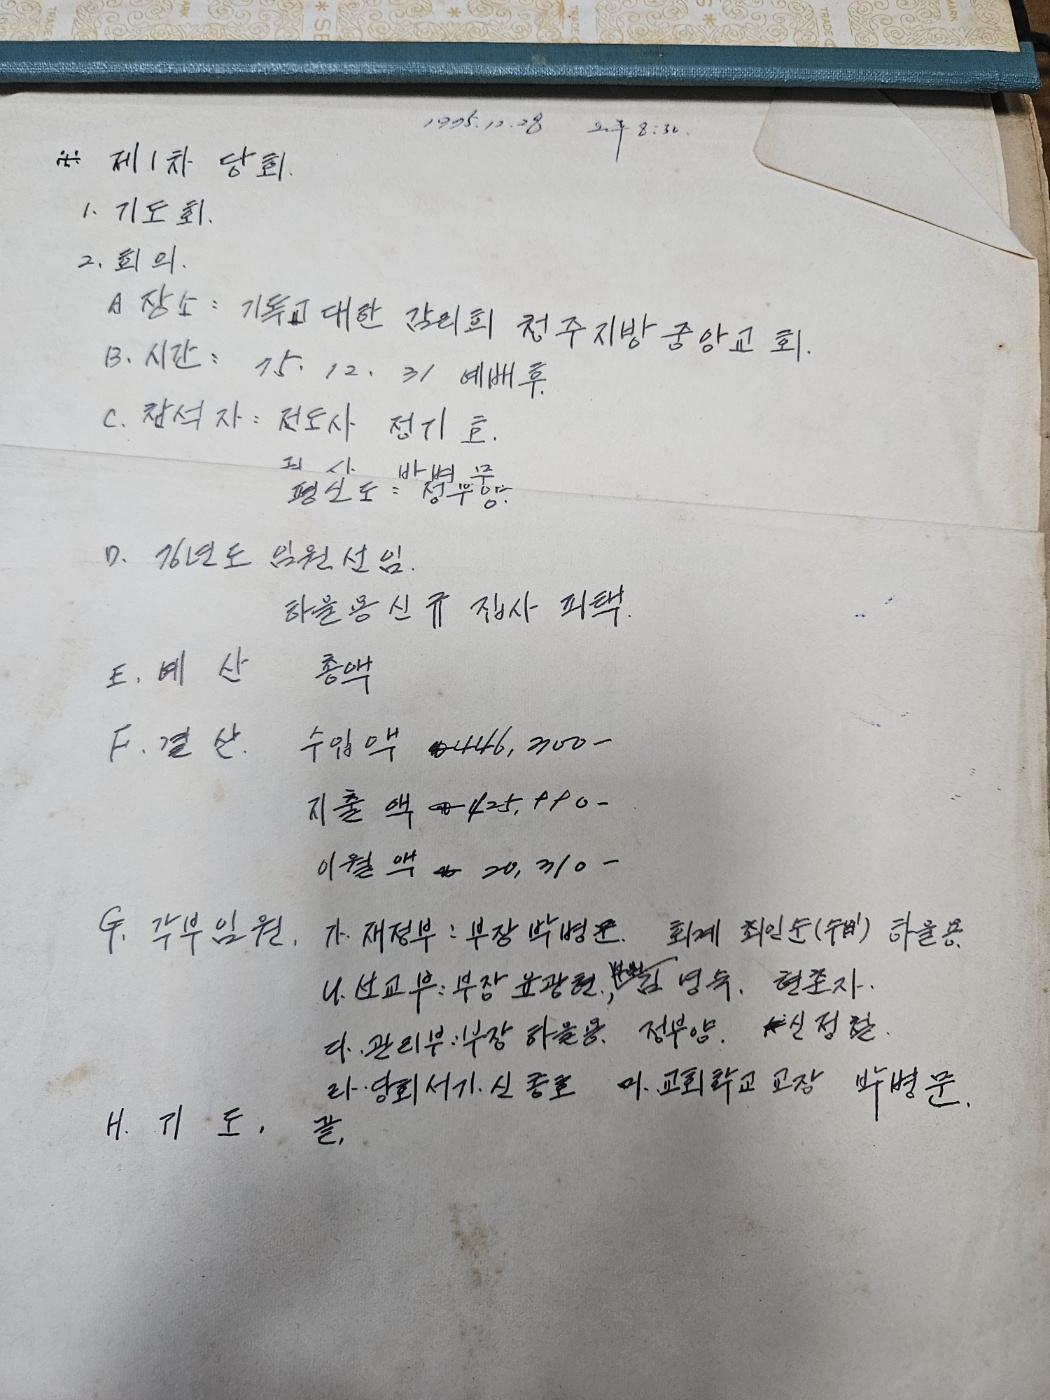 1975.12.28 오후 8:30.
※ 제1차 당회.
1. 기도회.
2. 회의.
A 장소: 기독교 대한 감리회 청주지방 중앙교회.
B. 시간: 75. 12. 31 예배후.
C. 참석자: 전도사 정기호.
박병문
평신도: 정부양.
D. 76년도 임원선임.
하을용 신규 집사 피택.
E. 예산 총액
F. 결산. 수입액 446,300-
지출액 425,990-
이월액 20,310-
G. 각부임원. 가. 재정부: 부장 박병문. 회계 최인순 하을용.
나. 선교부: 부장 윤광현, 김영숙. 현종자.
다. 관리부: 부장 하을용. 정부양. 신정철.
라. 당회서기. 신종호 마. 교회학교 교장 박병문.
H. 기도. 끝.